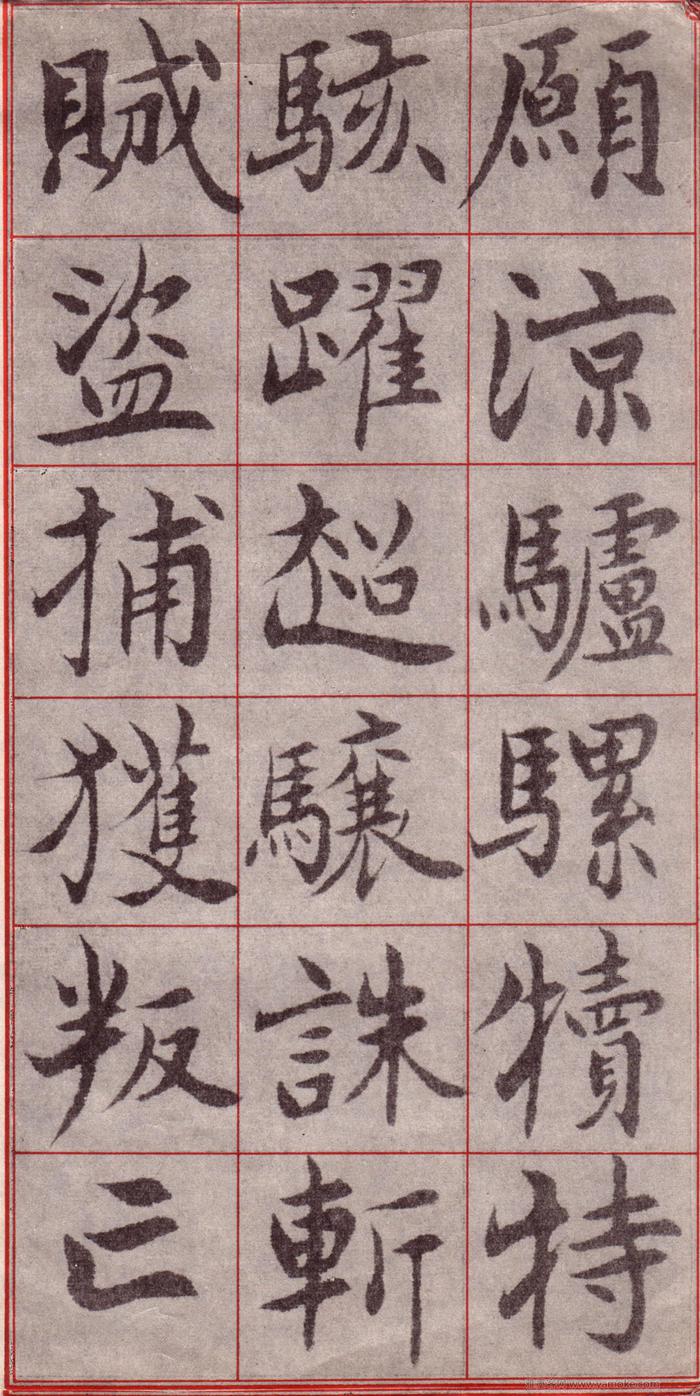 願涼驢騾犢特
駭躍超驤誅斬
賊盜捕獲叛亡